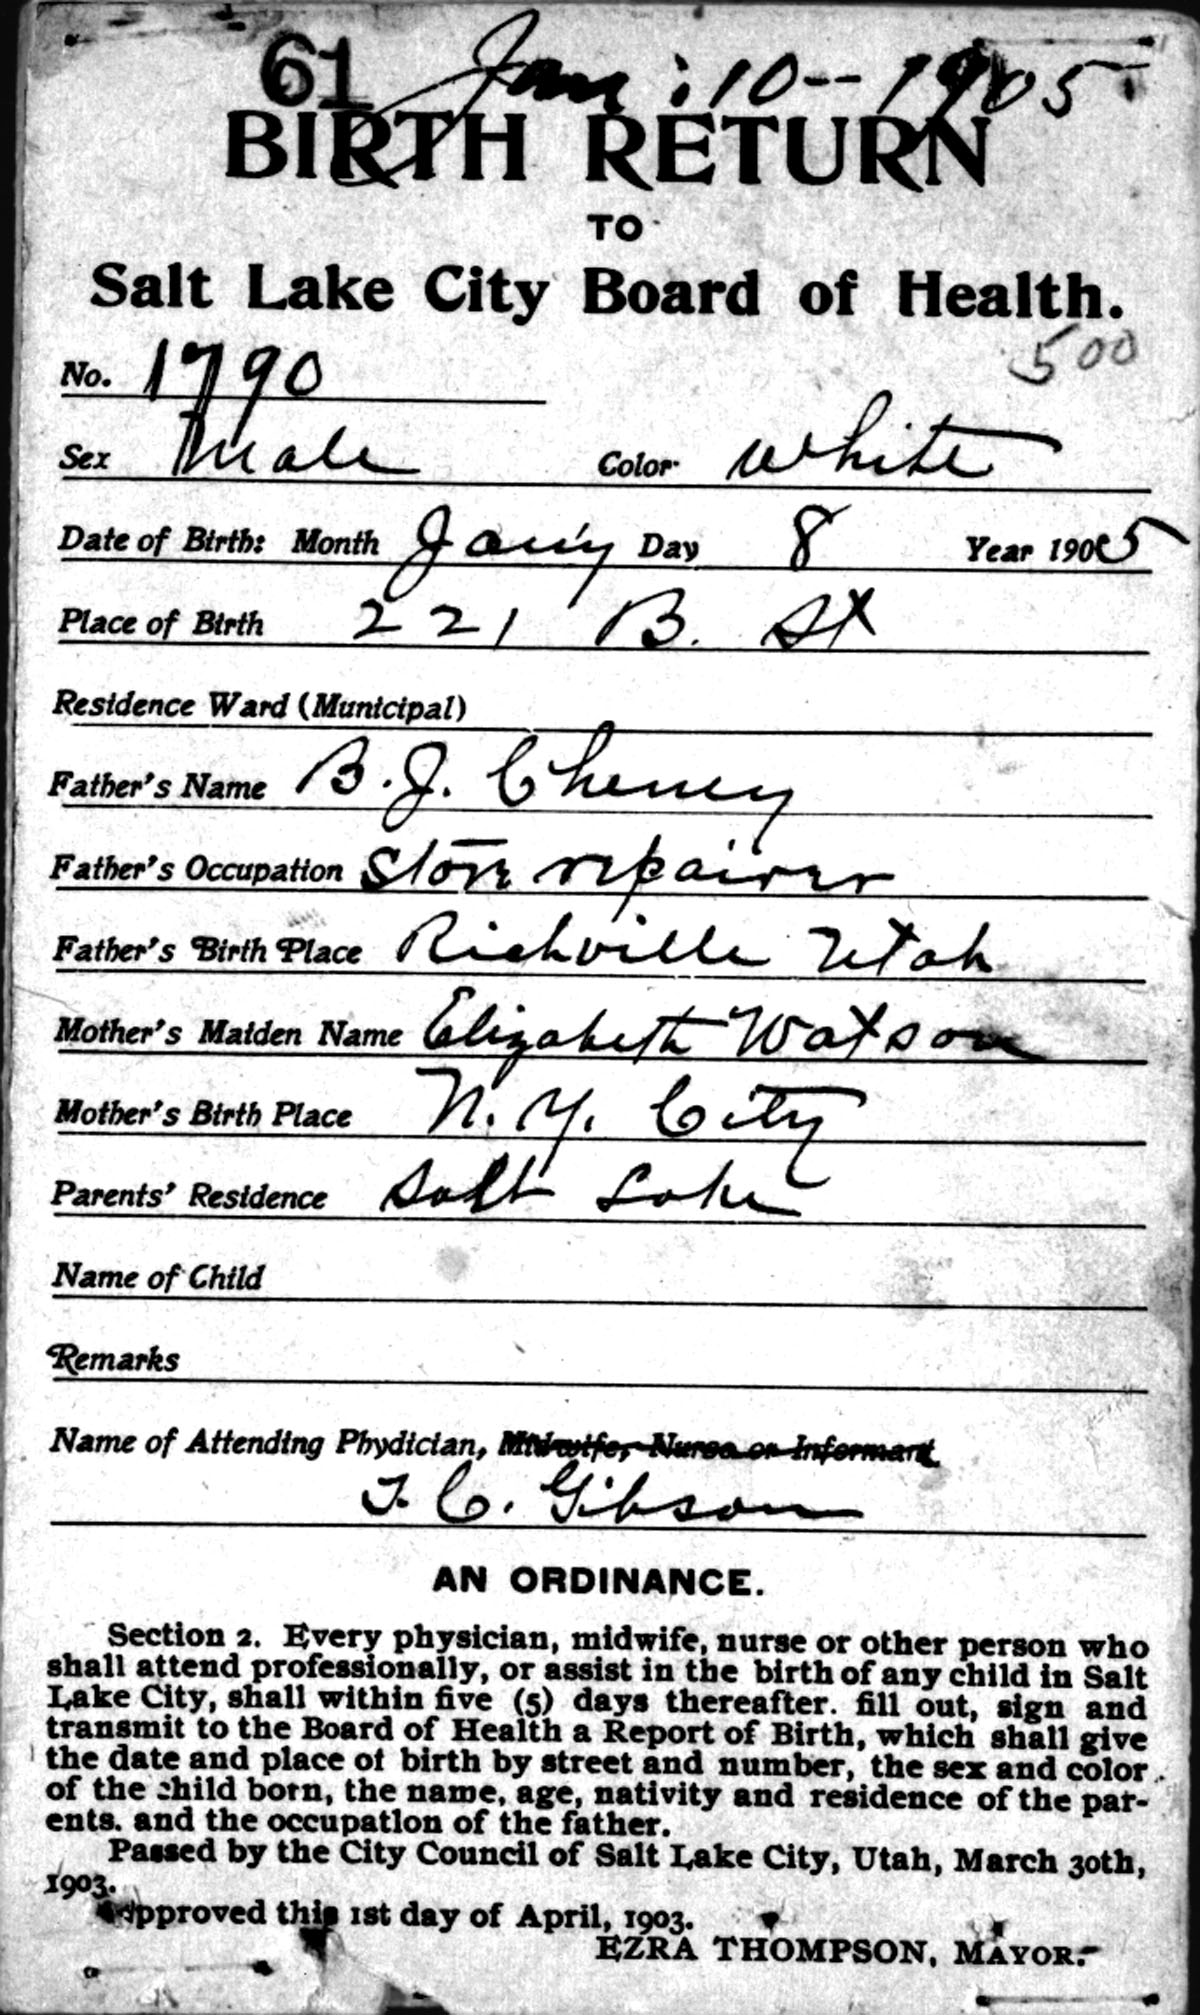 61 Jan: 10--1905
BIRTH RETURN
TO
Salt Lake City Board of Health.
500
No. 1790
Sex Male Color white
Date of Birth: Month Jany Day 8 Year 1905
Place of Birth 221 B. St
Residence Ward (Municipal)
Father's Name B. J. Cheney
Father's Occupation Stove repairer
Father's Birth Place Richville Utah
Mother's Maiden Name Elizabeth Watson
Mother's Birth Place N. Y. City
Parents' Residence Salt Lake
Name of Child
Remarks
Name of Attending Phydician, Midwife, Nurse or Informant
T. C. Gibson
AN ORDINANCE.
Section 2. Every physician, midwife, nurse or other person who
shall attend professionally, or assist in the birth of any child in Salt
Lake City, shall within five (5) days thereafter. fill out, sign and
transmit to the Board of Health a Report of Birth, which shall give
the date and place of birth by street and number, the sex and color
of the child born, the name, age, nativity and residence of the par-
ents. and the occupation of the father.
Passed by the City Council of Salt Lake City, Utah, March 30th,
1903.
Approved this 1st day of April, 1903.
EZRA THOMPSON, MAYOR.